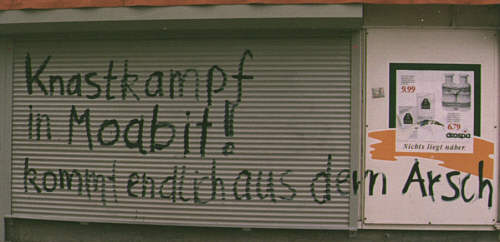 Knastkampf
in Moabit!
kommt endlich aus dem Arsch
9.99
6.79
drospa
Nichts liegt näher.